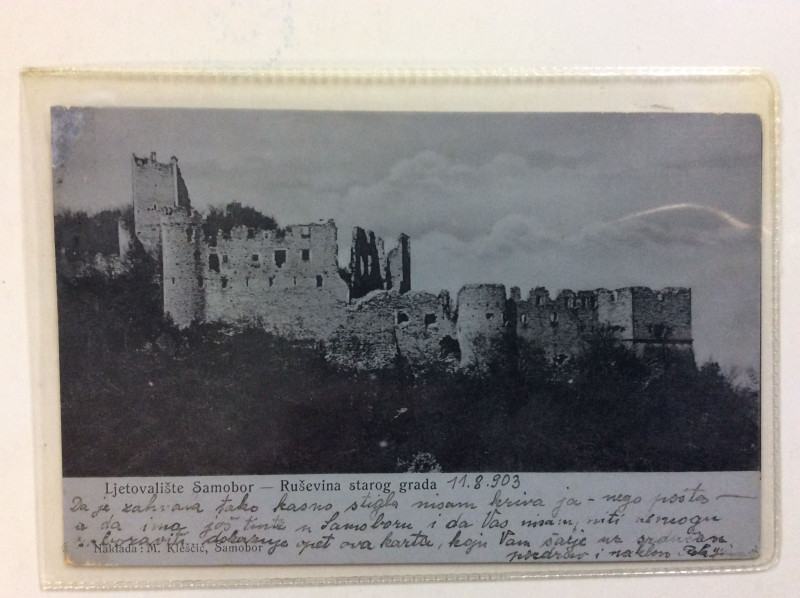 Ljetovalište Samobor — Ruševina starog grada 11.8.903
Da je zahvala tako kasno stigla nisam kriva ja - nego pošta —
a da ima još tinte u Samoboru i da Vas nisam, niti ne mogu
zaboraviti dokazuje opet ova karta, koju Vam šalje uz srdačan
Naklada: M. Kleščić, Samobor
pozdrav i naklon